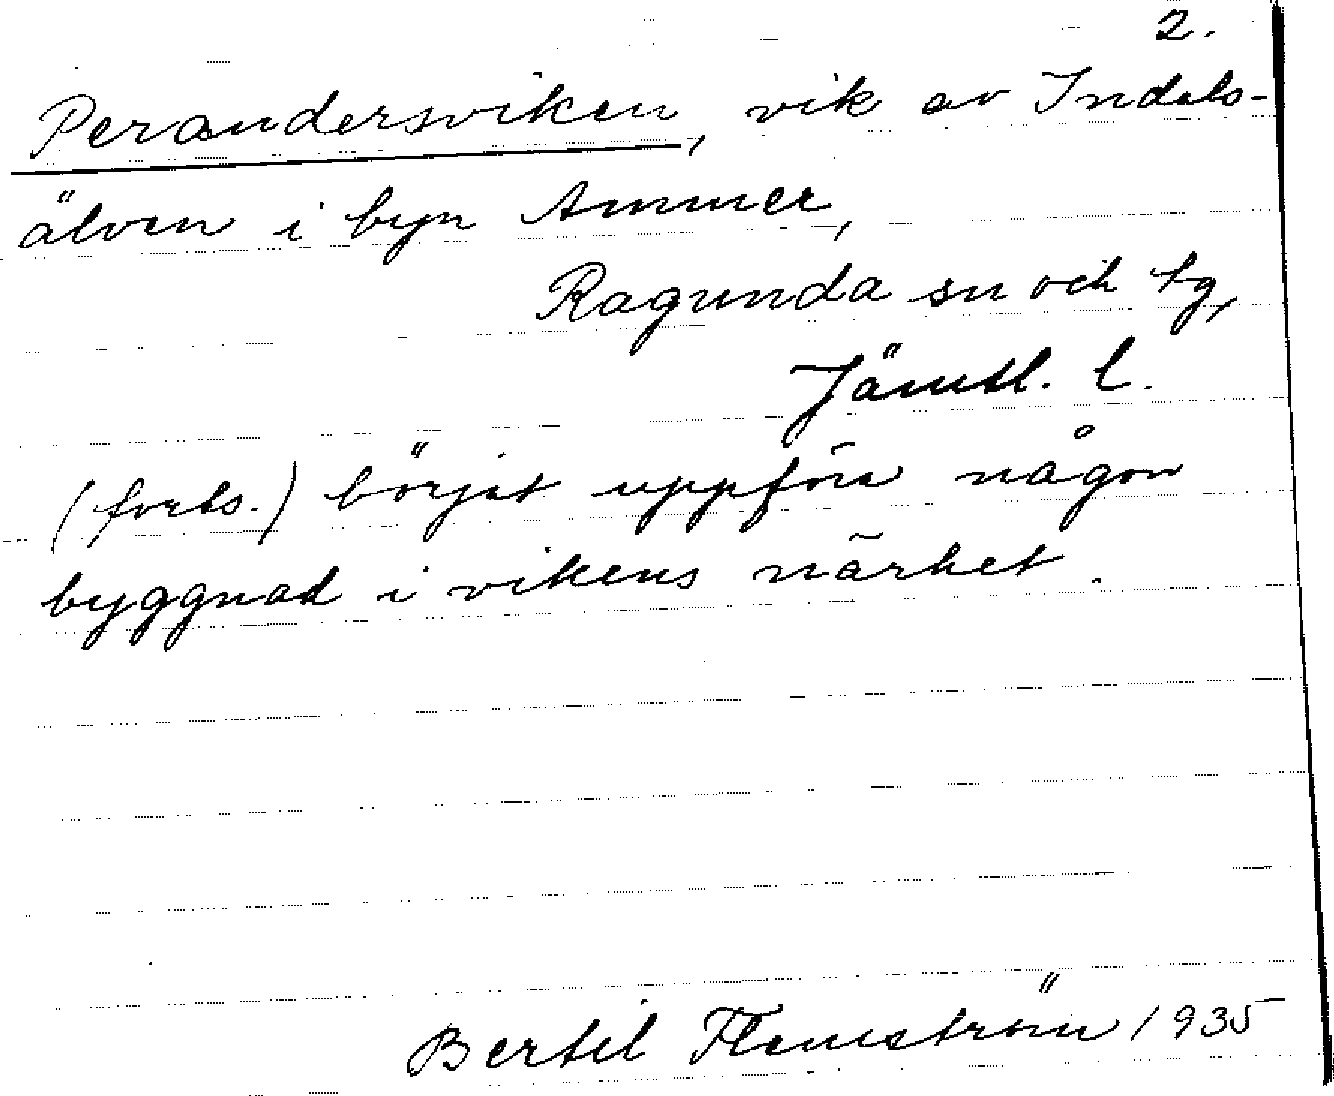 2.
Perandersviken, vik av Indals-
älven i byn Ammer,
Ragunda sn och tg,
Jämtl. l.
(forts.) börjat uppföra någon
byggnad i vikens närhet.
Bertil Flemström 1935